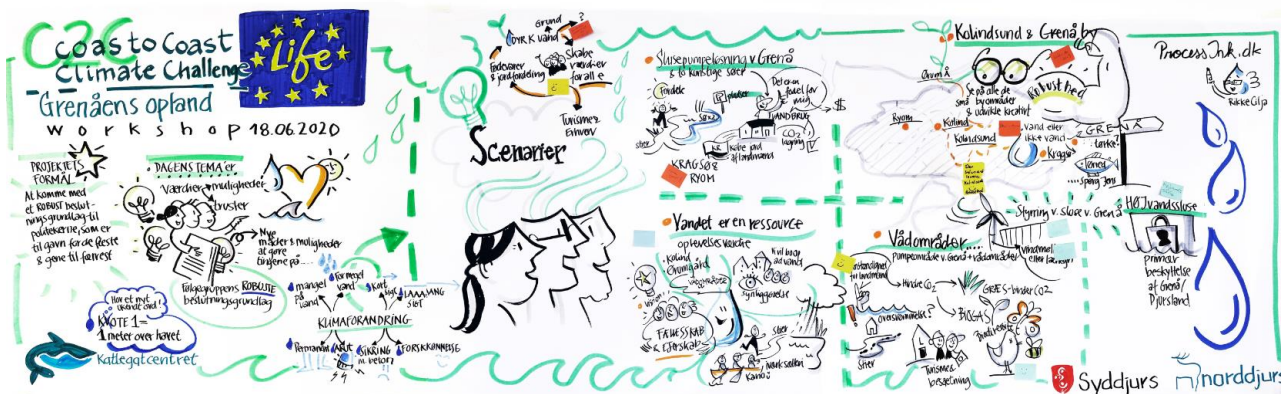 C2C
Coast to Coast
Climate Challenge
Life
Grenåens opland
workshop 18.06.2020
PROJEKTETS
FORMÅL
At komme med
et ROBUST beslut-
ningsgrundlag til
politikerne, som er
til gavn for de fleste
& gene til færrest
DAGENS TEMAer
Værdier
muligheder
trusler
Nye
måder & muligheder
at gøre
tingene på...
følgegruppens ROBUSTE
beslutningsgrundlag
Har et nyt
ukendt ord!
KVOTE 1=
1 meter over havet
Kattegatcentret
mangel
på vand
for meget
vand
Kort
sigt
LAAAANG
SIGT
KLIMAFORANDRING
Permanent
AKUT
SIKRING
m beton?
FORSKØNNELSE
Grund
vand
?
DYRK
Fødevarer
& jordfordeling
Skabe
værdier
for alle
Turisme &
Erhverv
Scenarier
Slusepumpeløsning v Grenå
& to kunstige søer
Fordele
P pladser
Det er en
fordel for
mig
$
Sund
LANDBRUG
stier
KR
Købe jord
af landmænd
CO2
lagring
KRAGSØ &
RYOM
Vandet er en ressource
oplevelsesværdie
Kolind
Ørumgård
Vådområder
Hvil bor
at vand
synliggørelse
Vision!
FÆLLESSKAB
& EJERSKAB
stier
Kano
Iværksætteri
Kolindsund & Grenå by
Ørum Å
Ryom
Se på alle de
små byområder
& udvikle kreativt
Kolind
Kolindsund
Robusthed
vand eller
ikke vand
Kragsø
GRENÅ
tanke?
Ørred
spørg Jens
Styring v. sluse v. Grenå
HØJvandssluse
primær
beskyttelse
af Grenå/
Djursland
Vådområder....
pumpeområde v. Grenå + vådområder
Vindmøl
eller
Hindre CO2
GRÆS - binder CO2
oversvømmelse?
BIOGAS
Biodiversitet
Stier
Turisme &
bosætning
ProcessInk.dk
Rikke Cilja
Syddjurs
norddjurs